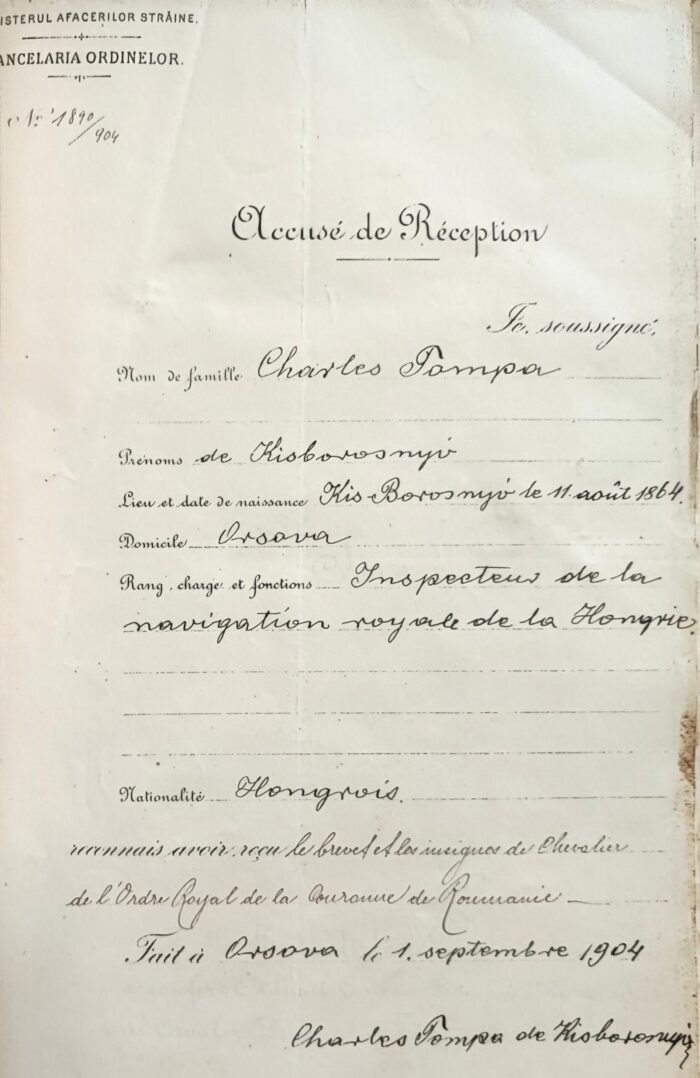 ISTERUL AFACERILOR STRĂINE.
ANCELARIA ORDINELOR.
No 1890/904
Accusé de Réception
Je, soussigné,
Nom de famille Charles Tompa
Prénoms de Kisborosnyó
Lieu et date de naissance Kis-Borosnyó le 11. août 1864.
Domicile Orsova
Rang, charge et fonctions Inspecteur de la
navigation royale de la Hongrie.
Nationalité Hongrois.
reconnais avoir reçu le brevet et les insignes de Chevalier
de l'Ordre Royal de la Couronne de Roumanie
Fait à Orsova le 1. septembre 1904
Charles Tompa de Kisborosnyó